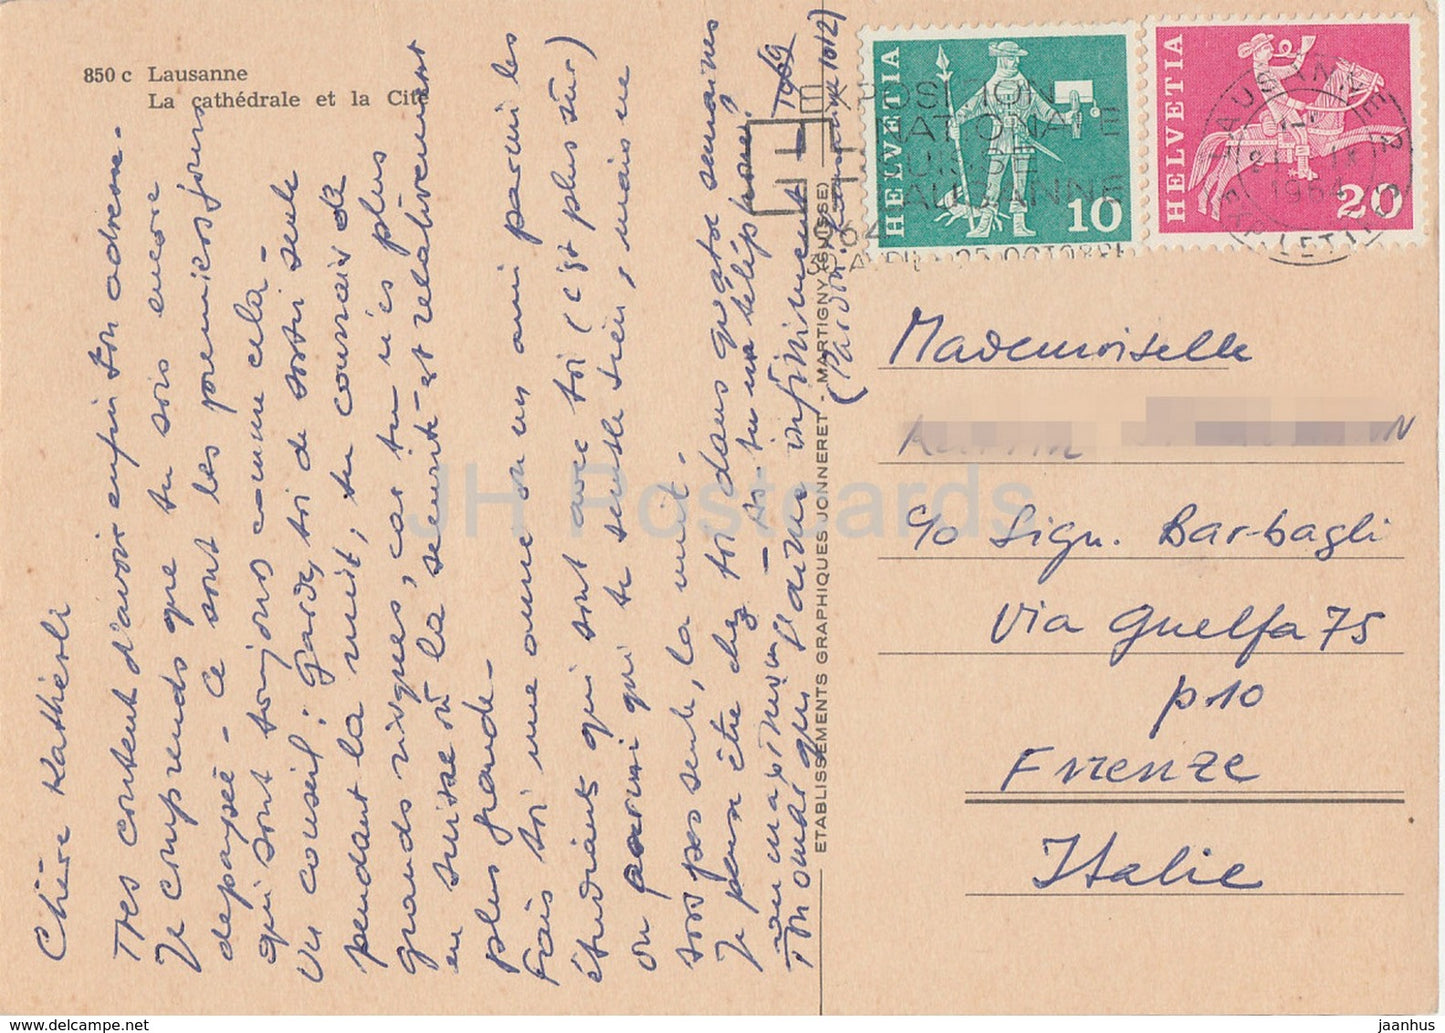 850 c Lausanne
La cathédrale et la Cité
Chère Katherli
Très content d'avoir enfin ton adresse.
Je comprends que tu sois encore
depaysée - ce sont les premiers jours
qui sont toujours comme cela -
Un conseil: garde, toi de sortir seule
pendant la nuit; tu courrais de
grands risques, car tu n'es plus
en suisse où la sécurité est relativement
plus grande -
Fais toi une amie ou un ami parmi les
étudiants qui sont avec toi (c'est plus sûr)
ou parmi qui te semble bien, mais ne
sors pas seule, la nuit.
Je pense être chez toi dans quatre semaines
- as-tu un téléphone?
Ton omar qui t'aime infiniment
(Pardon
ETABLISSEMENTS GRAPHIQUES JONNERET - MARTIGNY (SUISSE)
HELVETIA
10
HELVETIA
20
EXPOSITION
NATIONALE
SUISSE
LAUSANNE
64
30 AVRIL - 25 OCTOBRE
LAUSANNE
1964
EXP. LETTRES
Mademoiselle
c/o Sign. Barbagli
Via Guelfa 75
p. 10
Firenze
Italie
JH Postcards
www.delcampe.net
jaanhus